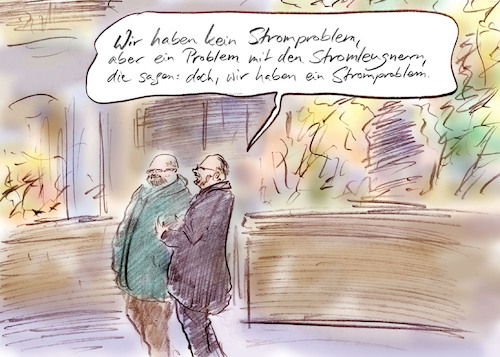 Wir haben kein Stromproblem,
aber ein Problem mit den Stromleugnern,
die sagen: doch, wir haben ein Stromproblem.